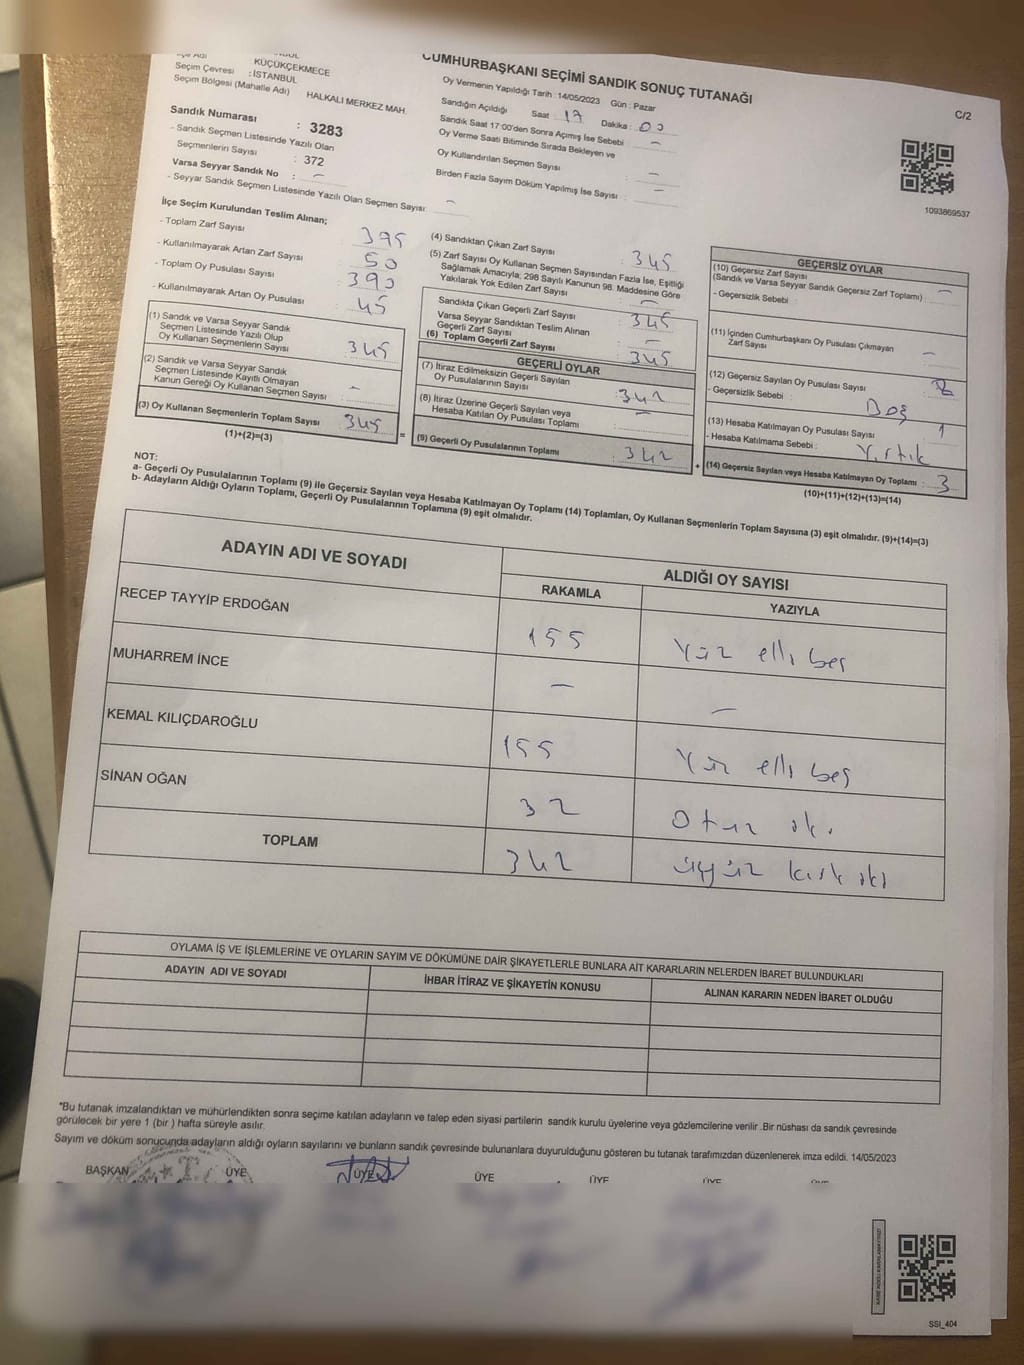 KÜÇÜKÇEKMECE
Seçim Çevresi : İSTANBUL
Seçim Bölgesi (Mahalle Adı) HALKALI MERKEZ MAH.
Sandık Numarası : 3283
- Sandık Seçmen Listesinde Yazılı Olan
Seçmenlerin Sayısı : 372
Varsa Seyyar Sandık No : -
- Seyyar Sandık Seçmen Listesinde Yazılı Olan Seçmen Sayısı: -
CUMHURBAŞKANI SEÇİMİ SANDIK SONUÇ TUTANAĞI
C/2
Oy Vermenin Yapıldığı Tarih : 14/05/2023 Gün : Pazar
Sandığın Açıldığı Saat : 17 Dakika : 00
Sandık Saat 17:00'den Sonra Açımış İse Sebebi : -
Oy Verme Saati Bitiminde Sırada Bekleyen ve
Oy Kullandırılan Seçmen Sayısı : -
Birden Fazla Sayım Döküm Yapılmış İse Sayısı : -
1093869537
İlçe Seçim Kurulundan Teslim Alınan;
- Toplam Zarf Sayısı : 395
- Kullanılmayarak Artan Zarf Sayısı : 50
- Toplam Oy Pusulası Sayısı : 390
- Kullanılmayarak Artan Oy Pusulası : 45
(1) Sandık ve Varsa Seyyar Sandık
Seçmen Listesinde Yazılı Olup
Oy Kullanan Seçmenlerin Sayısı : 345
(2) Sandık ve Varsa Seyyar Sandık
Seçmen Listesinde Kayıtlı Olmayan
Kanun Gereği Oy Kullanan Seçmen Sayısı : -
(3) Oy Kullanan Seçmenlerin Toplam Sayısı : 345
(1)+(2)=(3)
=
(4) Sandıktan Çıkan Zarf Sayısı : 345
(5) Zarf Sayısı Oy Kullanan Seçmen Sayısından Fazla İse, Eşitliği
Sağlamak Amacıyla; 298 Sayılı Kanunun 98. Maddesine Göre
Yakılarak Yok Edilen Zarf Sayısı : -
Sandıkta Çıkan Geçerli Zarf Sayısı : 345
Varsa Seyyar Sandıktan Teslim Alınan
Geçerli Zarf Sayısı : -
(6) Toplam Geçerli Zarf Sayısı : 345
GEÇERLİ OYLAR
(7) İtiraz Edilmeksizin Geçerli Sayılan
Oy Pusulalarının Sayısı : 342
(8) İtiraz Üzerine Geçerli Sayılan veya
Hesaba Katılan Oy Pusulası Toplamı : -
(9) Geçerli Oy Pusulalarının Toplamı : 342
+
GEÇERSİZ OYLAR
(10) Geçersiz Zarf Sayısı
(Sandık ve Varsa Seyyar Sandık Geçersiz Zarf Toplamı) : -
- Geçersizlik Sebebi :
(11) İçinden Cumhurbaşkanı Oy Pusulası Çıkmayan
Zarf Sayısı : -
(12) Geçersiz Sayılan Oy Pusulası Sayısı : 2
- Geçersizlik Sebebi : Boş
(13) Hesaba Katılmayan Oy Pusulası Sayısı : 1
- Hesaba Katılmama Sebebi : Yırtık
(14) Geçersiz Sayılan veya Hesaba Katılmayan Oy Toplamı : 3
(10)+(11)+(12)+(13)=(14)
NOT:
a- Geçerli Oy Pusulalarının Toplamı (9) ile Geçersiz Sayılan veya Hesaba Katılmayan Oy Toplamı (14) Toplamları, Oy Kullanan Seçmenlerin Toplam Sayısına (3) eşit olmalıdır. (9)+(14)=(3)
b- Adayların Aldığı Oyların Toplamı, Geçerli Oy Pusulalarının Toplamına (9) eşit olmalıdır.
ADAYIN ADI VE SOYADI ALDIĞI OY SAYISI
RAKAMLA YAZIYLA
RECEP TAYYİP ERDOĞAN 155 Yüz elli beş
MUHARREM İNCE - -
KEMAL KILIÇDAROĞLU 155 Yüz elli beş
SİNAN OĞAN 32 Otuz iki
TOPLAM 342 üçyüz kırk iki
OYLAMA İŞ VE İŞLEMLERİNE VE OYLARIN SAYIM VE DÖKÜMÜNE DAİR ŞİKAYETLERLE BUNLARA AİT KARARLARIN NELERDEN İBARET BULUNDUKLARI
ADAYIN ADI VE SOYADI İHBAR İTİRAZ VE ŞİKAYETİN KONUSU ALINAN KARARIN NEDEN İBARET OLDUĞU
*Bu tutanak imzalandıktan ve mühürlendikten sonra seçime katılan adayların ve talep eden siyasi partilerin sandık kurulu üyelerine veya gözlemcilerine verilir .Bir nüshası da sandık çevresinde
görülecek bir yere 1 (bir ) hafta süreyle asılır.
Sayım ve döküm sonucunda adayların aldığı oyların sayılarını ve bunların sandık çevresinde bulunanlara duyurulduğunu gösteren bu tutanak tarafımızdan düzenlenerek imza edildi. 14/05/2023
BAŞKAN ÜYE ÜYE ÜYE ÜYE ÜYE
SSI_404